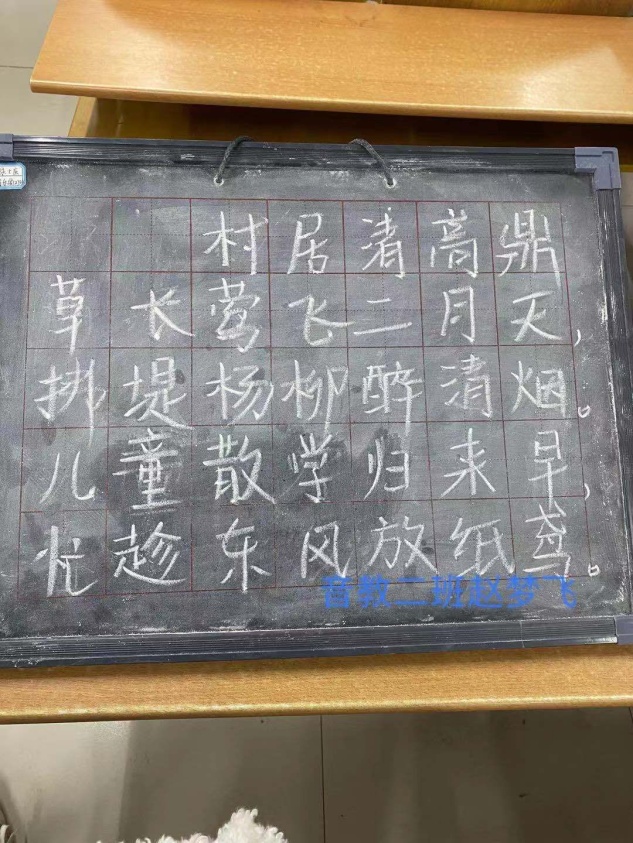 村居清高鼎
草长莺飞二月天，
拂堤杨柳醉清烟。
儿童散学归来早，
忙趁东风放纸鸢。
音教二班赵梦飞